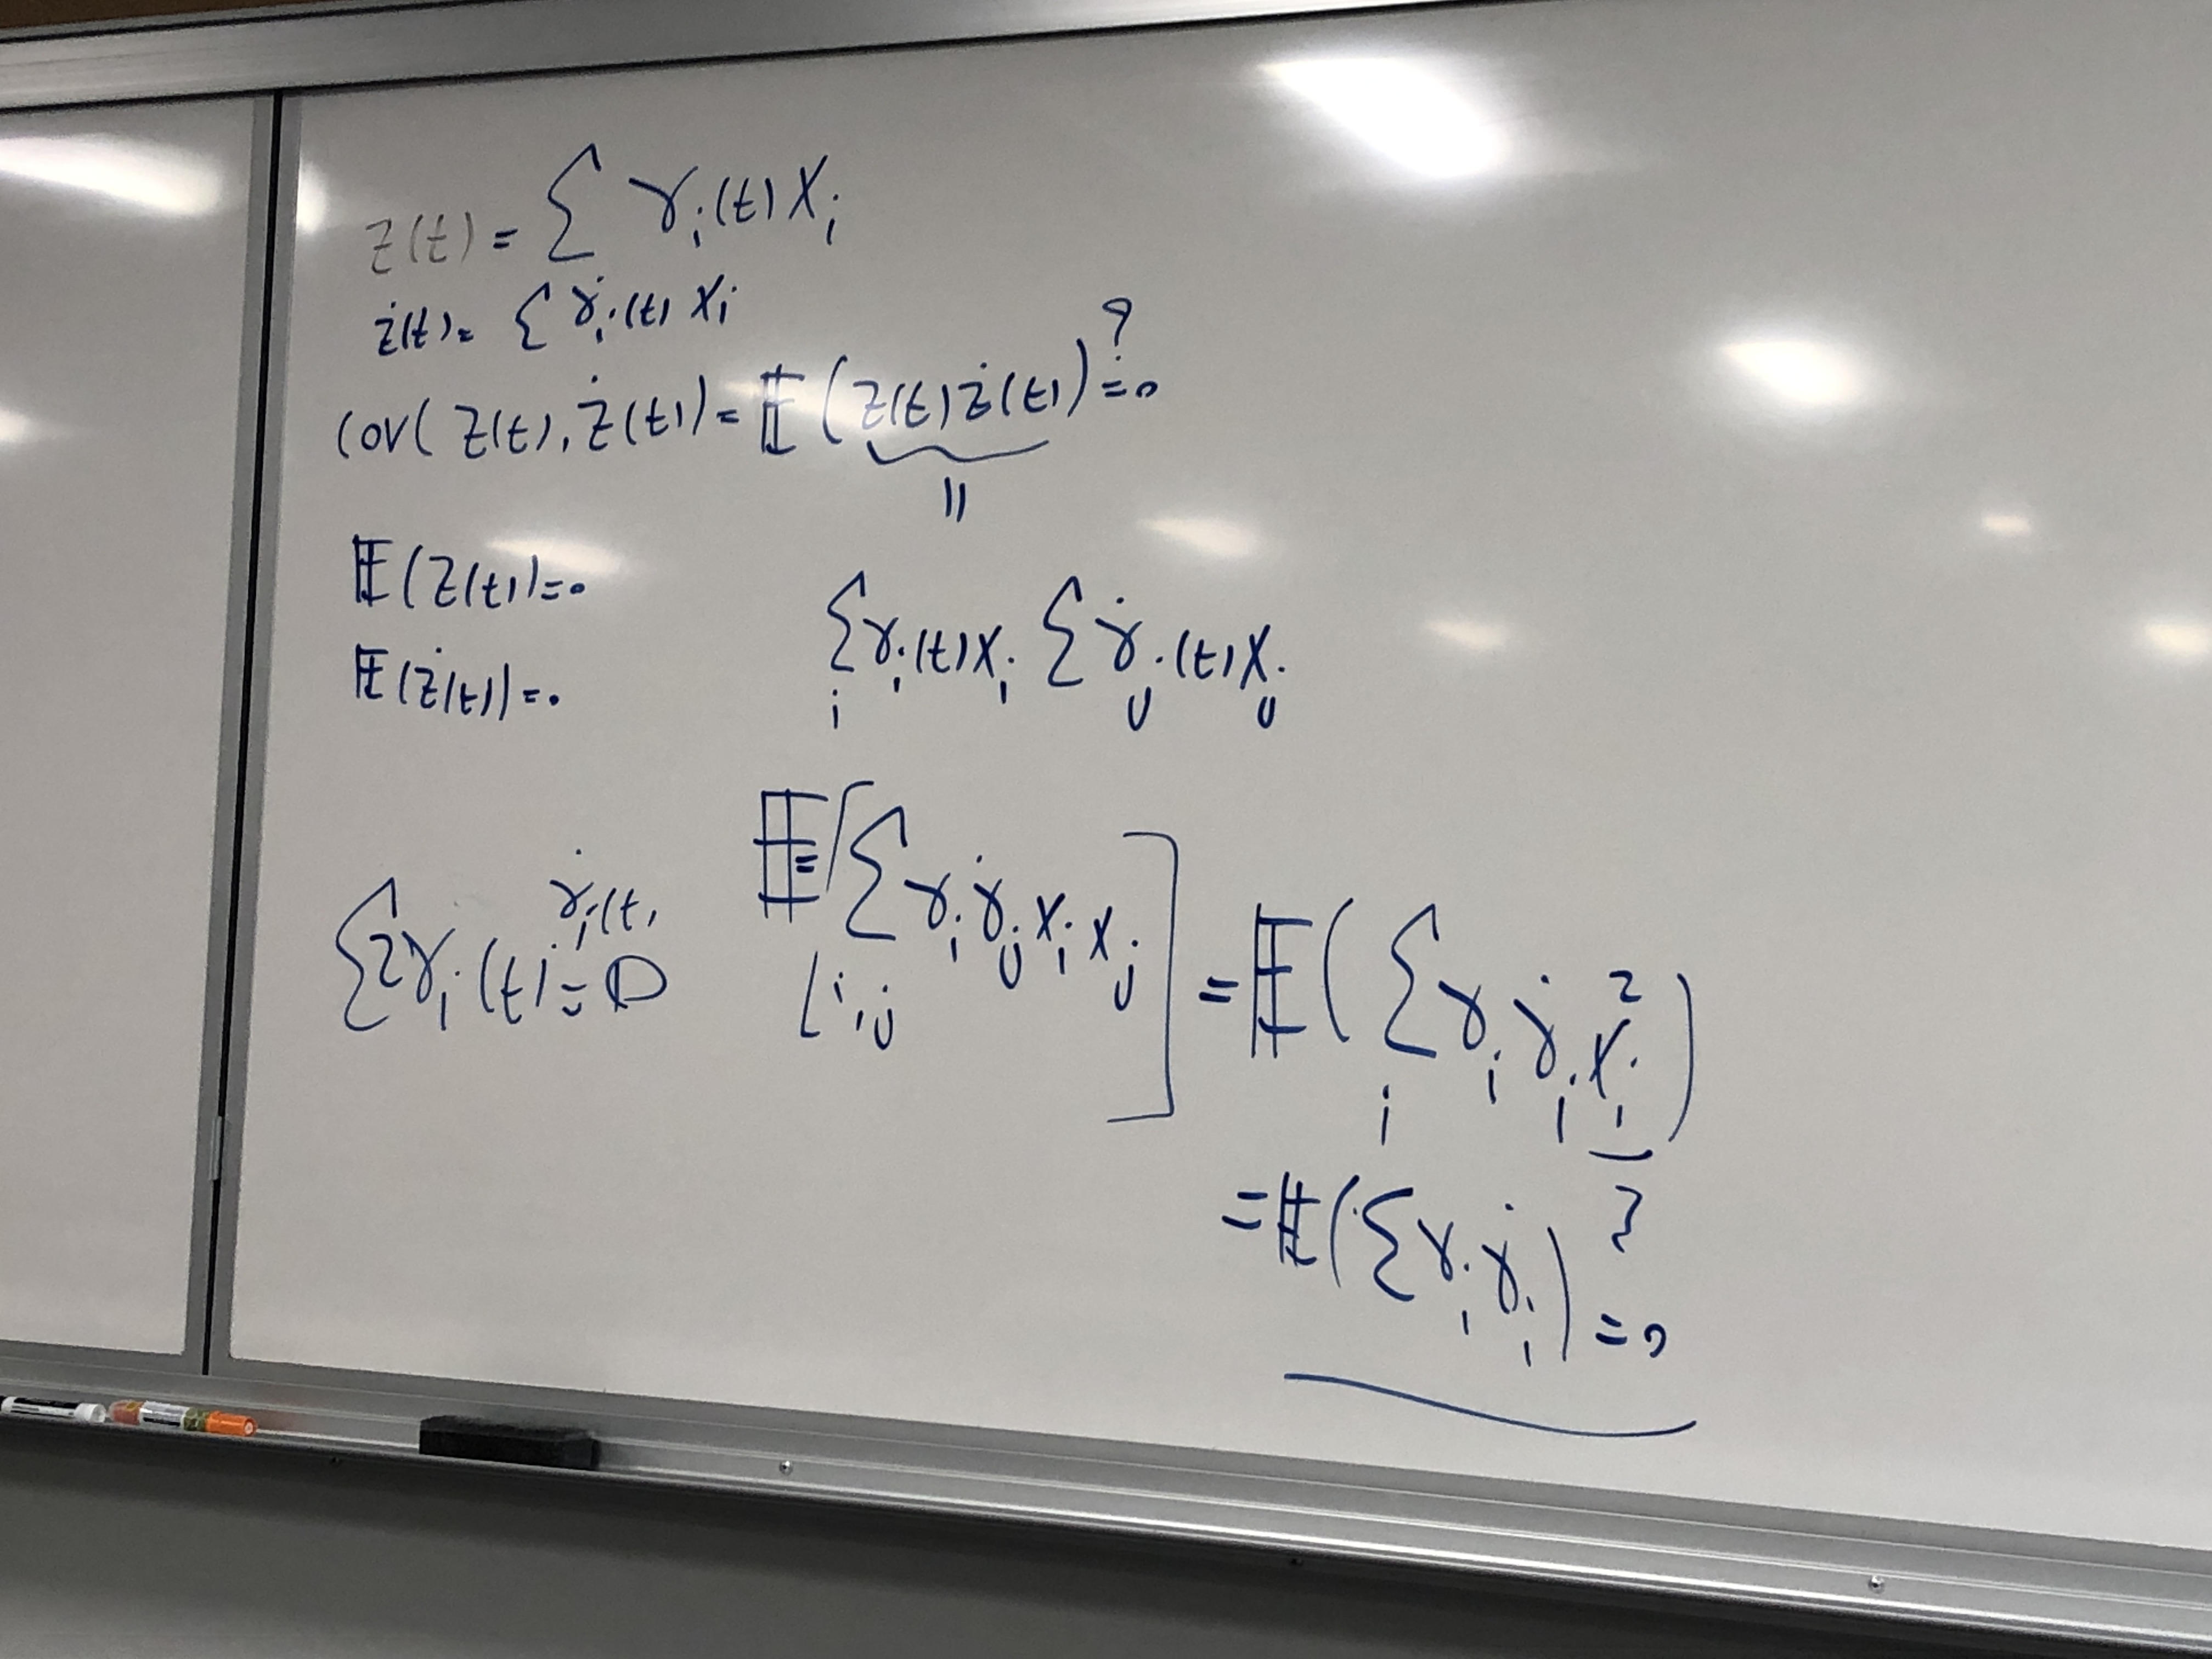 Z(t) = Σ γ_i(t) X_i
Ż(t) = Σ γ̇_i(t) X_i
Cov(Z(t), Ż(t)) = 𝔼(Z(t)Ż(t)) =? 0
||
𝔼(Z(t)) = 0
𝔼(Ż(t)) = 0
Σ_i γ_i(t) X_i Σ γ̇_j(t) X_j
Σ 2γ_i(t) γ̇_i(t) = 0
𝔼 = [Σ_{i,j} γ_i γ̇_j X_i X_j] = 𝔼(Σ_i γ_i γ̇_i X_i^2)
= 𝔼(Σ γ_i γ̇_i) = 0